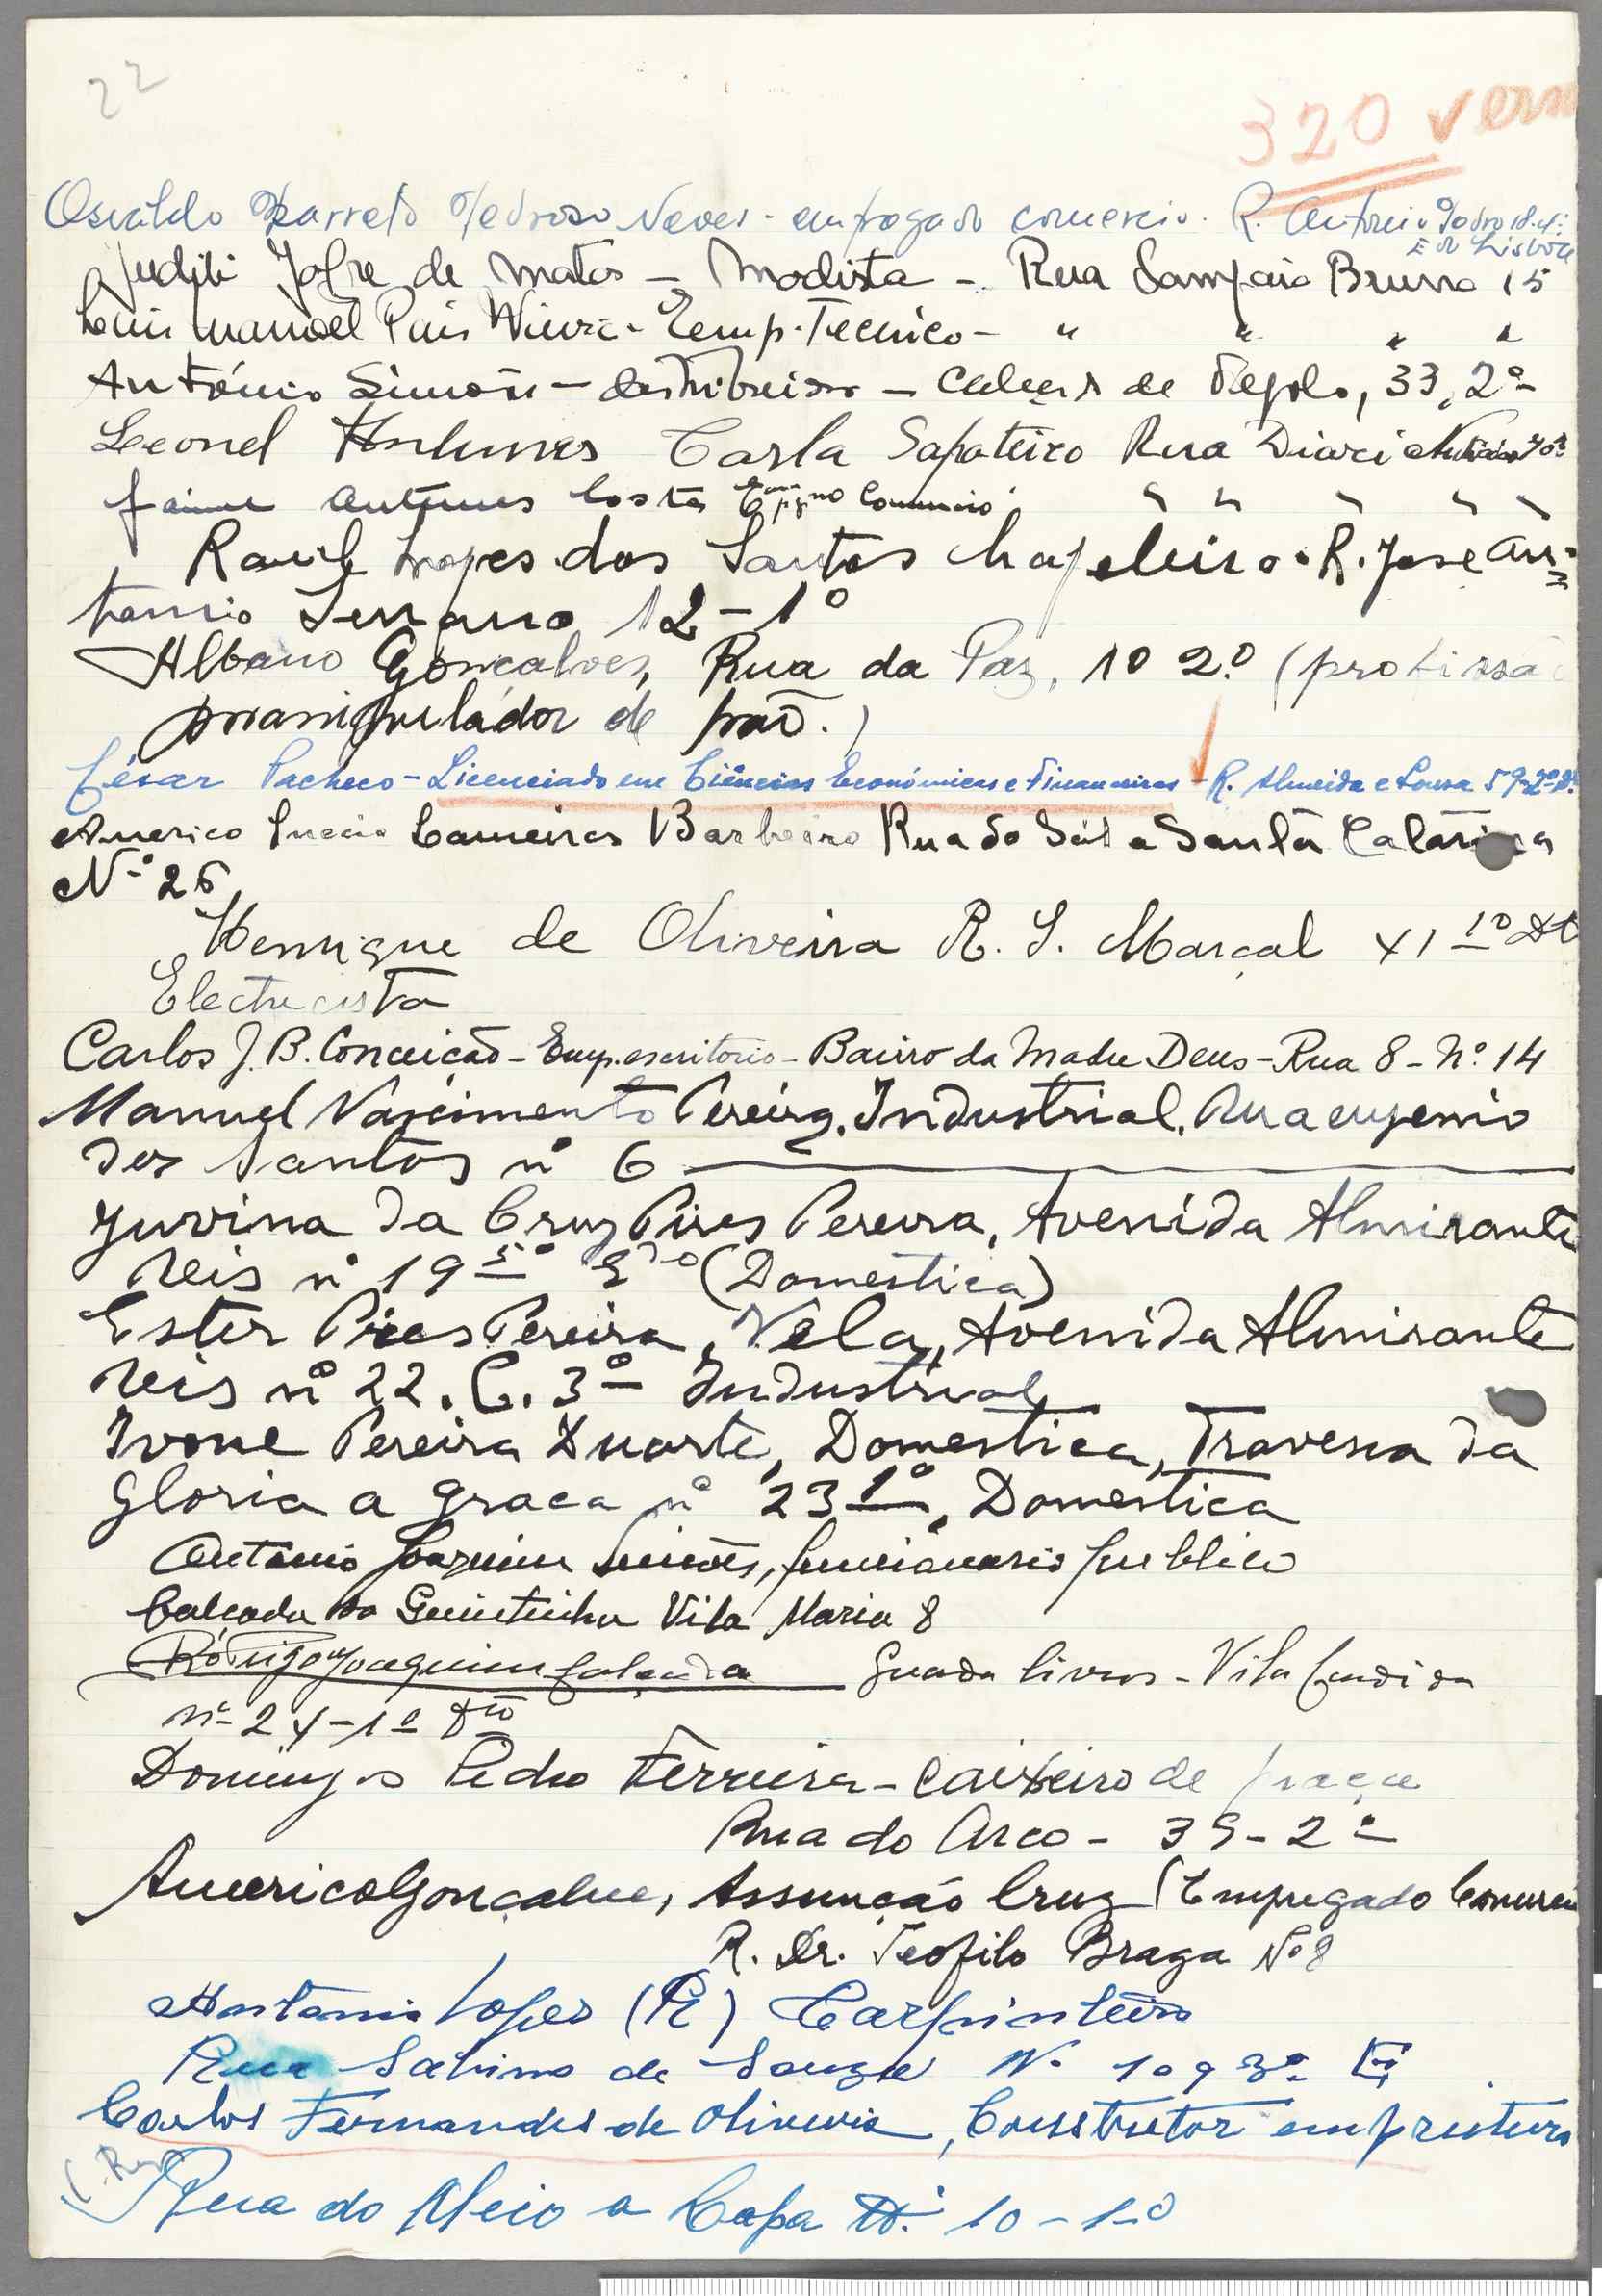 22
320 verm
Osvaldo Barreto Pedroso Neves - empregado comercio. R. Antonio Pedro 18-4º
E. do Lisboa
Judite Jofre de Matos - Modista - Rua Sampaio Bruno 15
Luis Manuel Pais Vieira - Emp. Tecnico - " " " "
António Simões - distribuidor - Calçada de 33, 2º
Leonel Antunes Carla Sapateiro Rua Diario Noticias
Jaime Antunes Costa Empgno Comercio " " " " "
Raul Lopes dos Santos Chapeleiro. R. Jose An=
tonio Serrano 12-1º
Albano Gonçalves, Rua da Paz, 10 2.º (profissão
manipulador de pão.)
César Pacheco - Licenciado em Ciências Económicas e Financeiras - R. Almeida e Sousa 59-2º D.
Americo Inacio Carneiros Barbeiro Rua do Sól a Santa Catarina
Nº 26
Henrique de Oliveira R. S. Marçal 41 1º Dt
Electrecista
Carlos J. B. Conceição - Emp. escritorio - Bairro da Madre Deus - Rua 8 - Nº 14
Manuel Nascimento Pereira. Industrial. Rua eugenio
dos Santos nº 6
Juvina da Cruz Pires Pereira, Avenida Almirante
Reis nº 19 5º (Domestica)
Ester Pires Pereira, Vela, Avenida Almirante
Reis nº 22. C. 3º Industrial
Ivone Pereira Duarte, Domestica, Travessa da
Gloria a graca nº 23 1º, Domestica
Antonio Joaquim Simões, funcionario publico
Calçada do Quintinha Vila Maria 8
Rodrigo Joaquim Guarda livros - Vila Candida
nº 24-1º Dto
Domingos Pedro Ferreira - Caixeiro de praça
Rua do Arco - 39-2º
Americo Gonçalves, Assunção Cruz (Empregado Comercio
R. Dr. Teofilo Braga Nº 8
Antonio Lopes (R) Carpinteiro
Rua Sabino de Souza Nº 109 3º
Carlos Fernandes de Oliveira, Construtor empreiteiro
Rua do Meio a Lapa Nº 10-1º